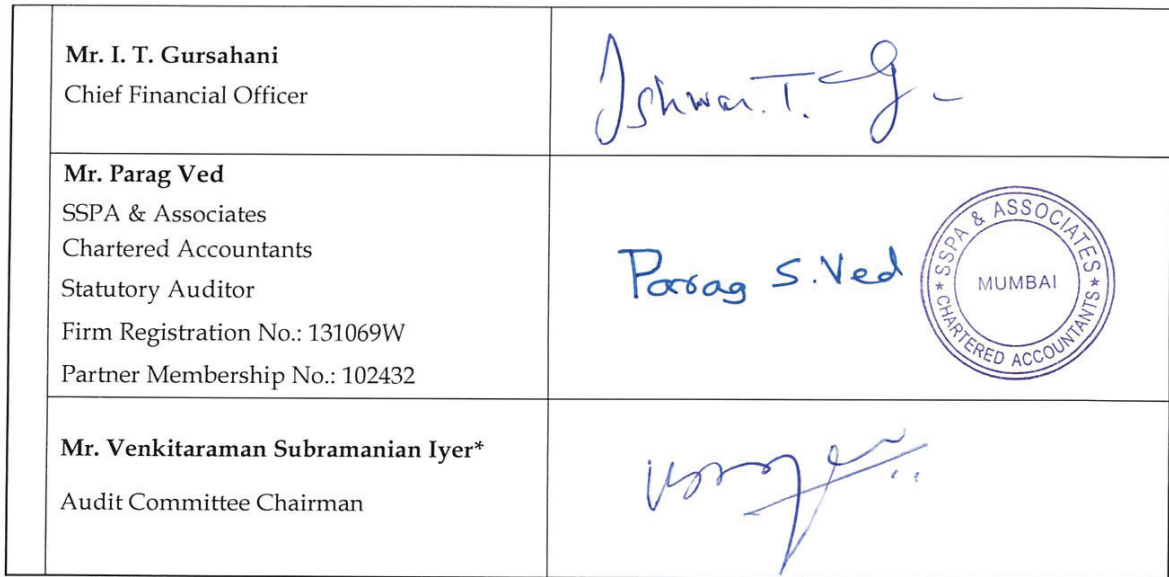 Mr. I. T. Gursahani
Chief Financial Officer
Ishwar. T. G.
Mr. Parag Ved
SSPA & Associates
Chartered Accountants
Statutory Auditor
Firm Registration No.: 131069W
Partner Membership No.: 102432
Parag S. Ved
* SSPA & ASSOCIATES *
CHARTERED ACCOUNTANTS
MUMBAI
Mr. Venkitaraman Subramanian Iyer*
Audit Committee Chairman